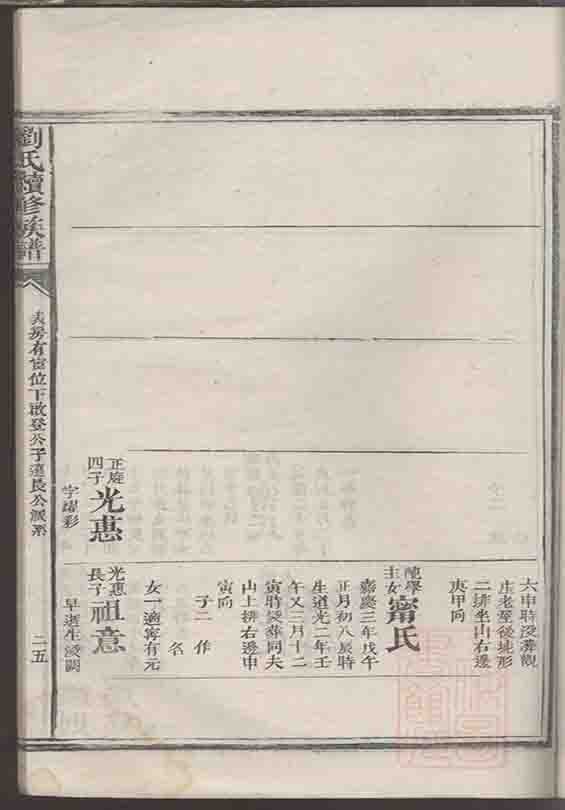 六申時沒葬觀
庄老塋後地形
二排坐山右邊
庚甲向
主女甯氏
嘉慶三年戊午
正月初八辰時
生道光二年壬
午又三月十二
寅時歿葬同夫
山上排右邊申
寅向
子二 作
名
女一適寧有元
正庭
四子光蕙
字躍彩
光蕙
長子祖意
早逝生歿闕
劉氏續修族譜
房有富位下啟登公子遠長公派系
二五